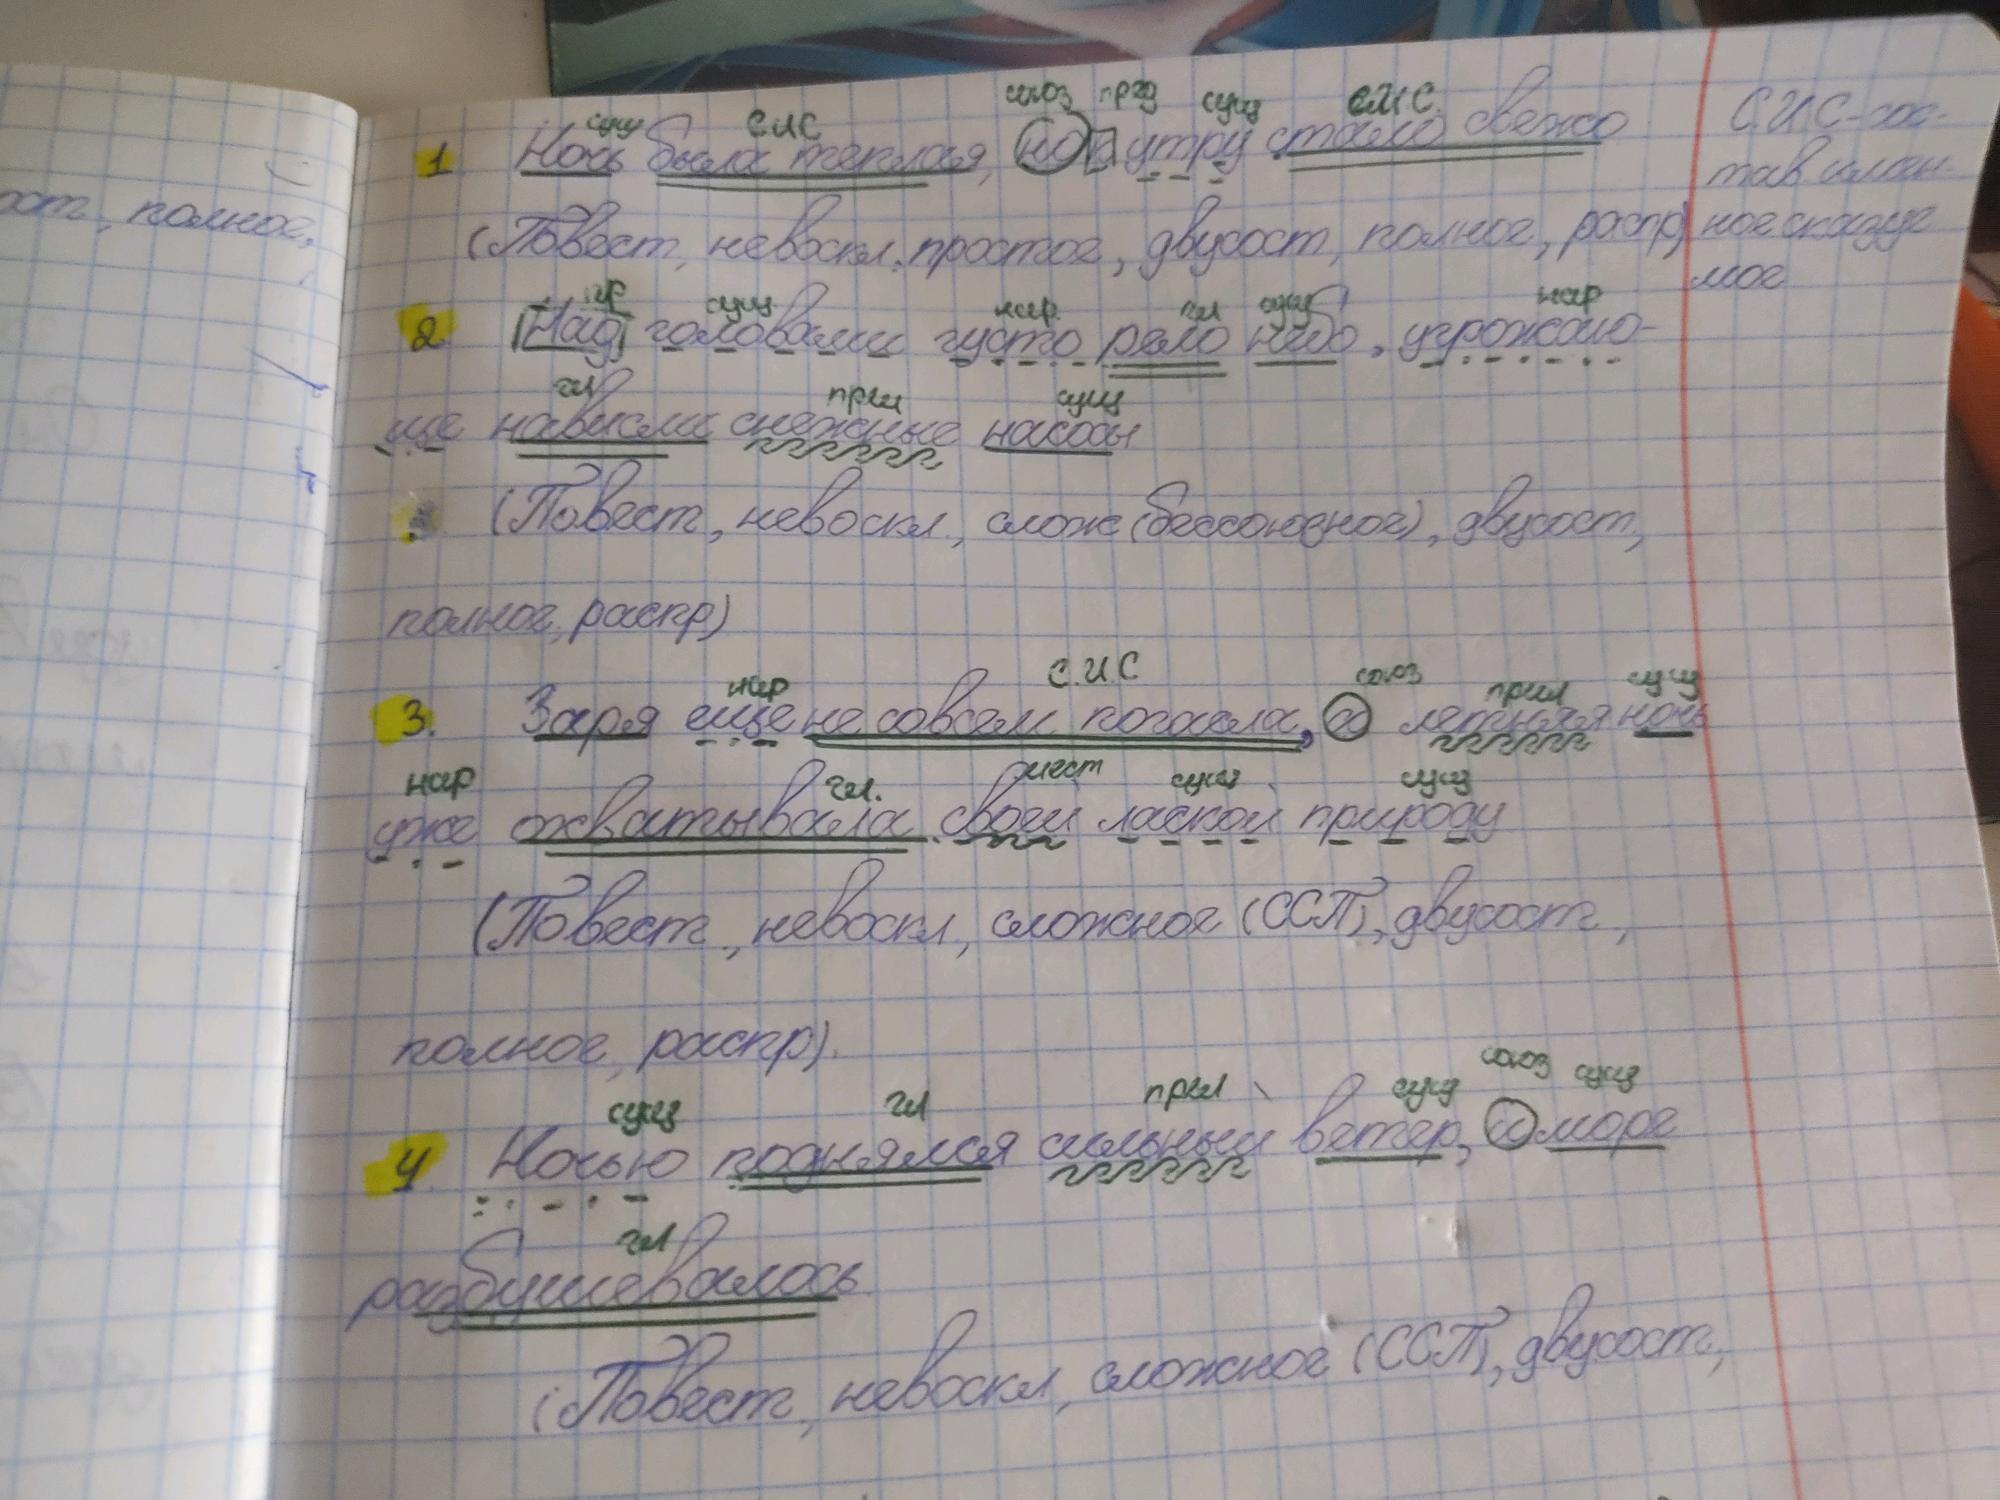 сущ С.И.С союз предл сущ С.И.С.
1. Ночь была теплая, но к утру стало свежо
С.И.С - сос-
тав. имен-
ное сказуе
мое
(Повест, невоскл. простое, двусост, полное, распр)
пр сущ нар. гл сущ нар
2 Над головами густо рело небо, угрожаю-
гл прил сущ
ще нависли снежные насосы
(Повест, невоскл., слож (бессоюзное), двусост,
полное, распр)
нар С.И.С союз прил сущ
3. Заря еще не совсем погасла, а летняя ночь
нар гл. мест сущ сущ
уже охватывала своей лаской природу
(Повест, невоскл, сложное (ССП), двусост,
полное, распр).
сущ гл прил сущ союз сущ
4. Ночью поднялся сильный ветер, а море
гл
разбушевалось
(Повест, невоскл, сложное (ССП), двусост,
ост, полное,